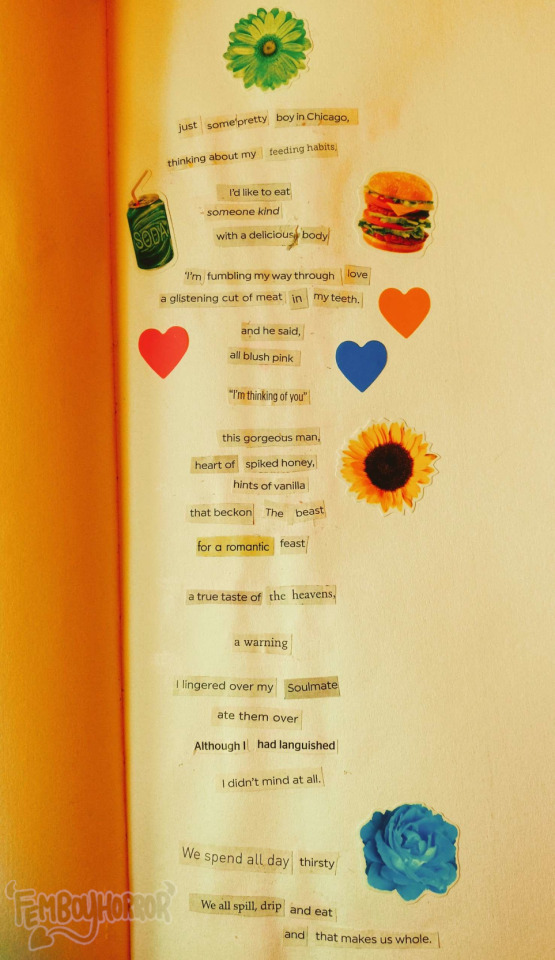 just some pretty boy in Chicago,
thinking about my feeding habits,
I'd like to eat
someone kind
SODA
with a delicious body
'I'm fumbling my way through love
a glistening cut of meat in my teeth.
and he said,
all blush pink
"I'm thinking of you"
this gorgeous man,
heart of spiked honey,
hints of vanilla
that beckon The beast
for a romantic feast
a true taste of the heavens,
a warning
I lingered over my Soulmate
ate them over
Although I had languished
I didn't mind at all.
We spend all day thirsty
We all spill, drip and eat
and that makes us whole.
'FEMBOYHORROR'